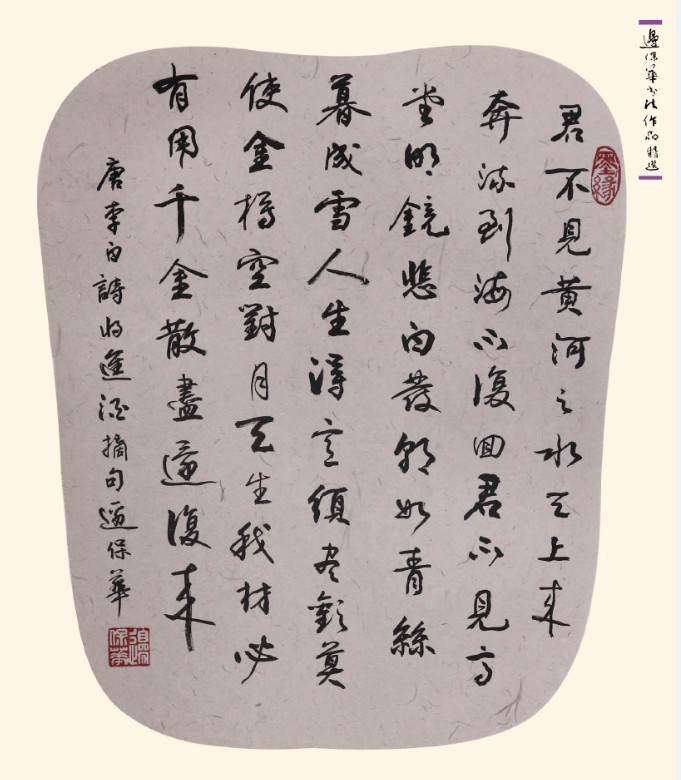 邊保華书法作品精選
墨缘
君不見黄河之水天上来
奔流到海不復回君不見高
堂明鏡悲白發朝如青絲
暮成雪人生得意須尽歡莫
使金樽空對月天生我材必
有用千金散盡還復来
唐李白詩将進酒摘句邊保華
邊保華